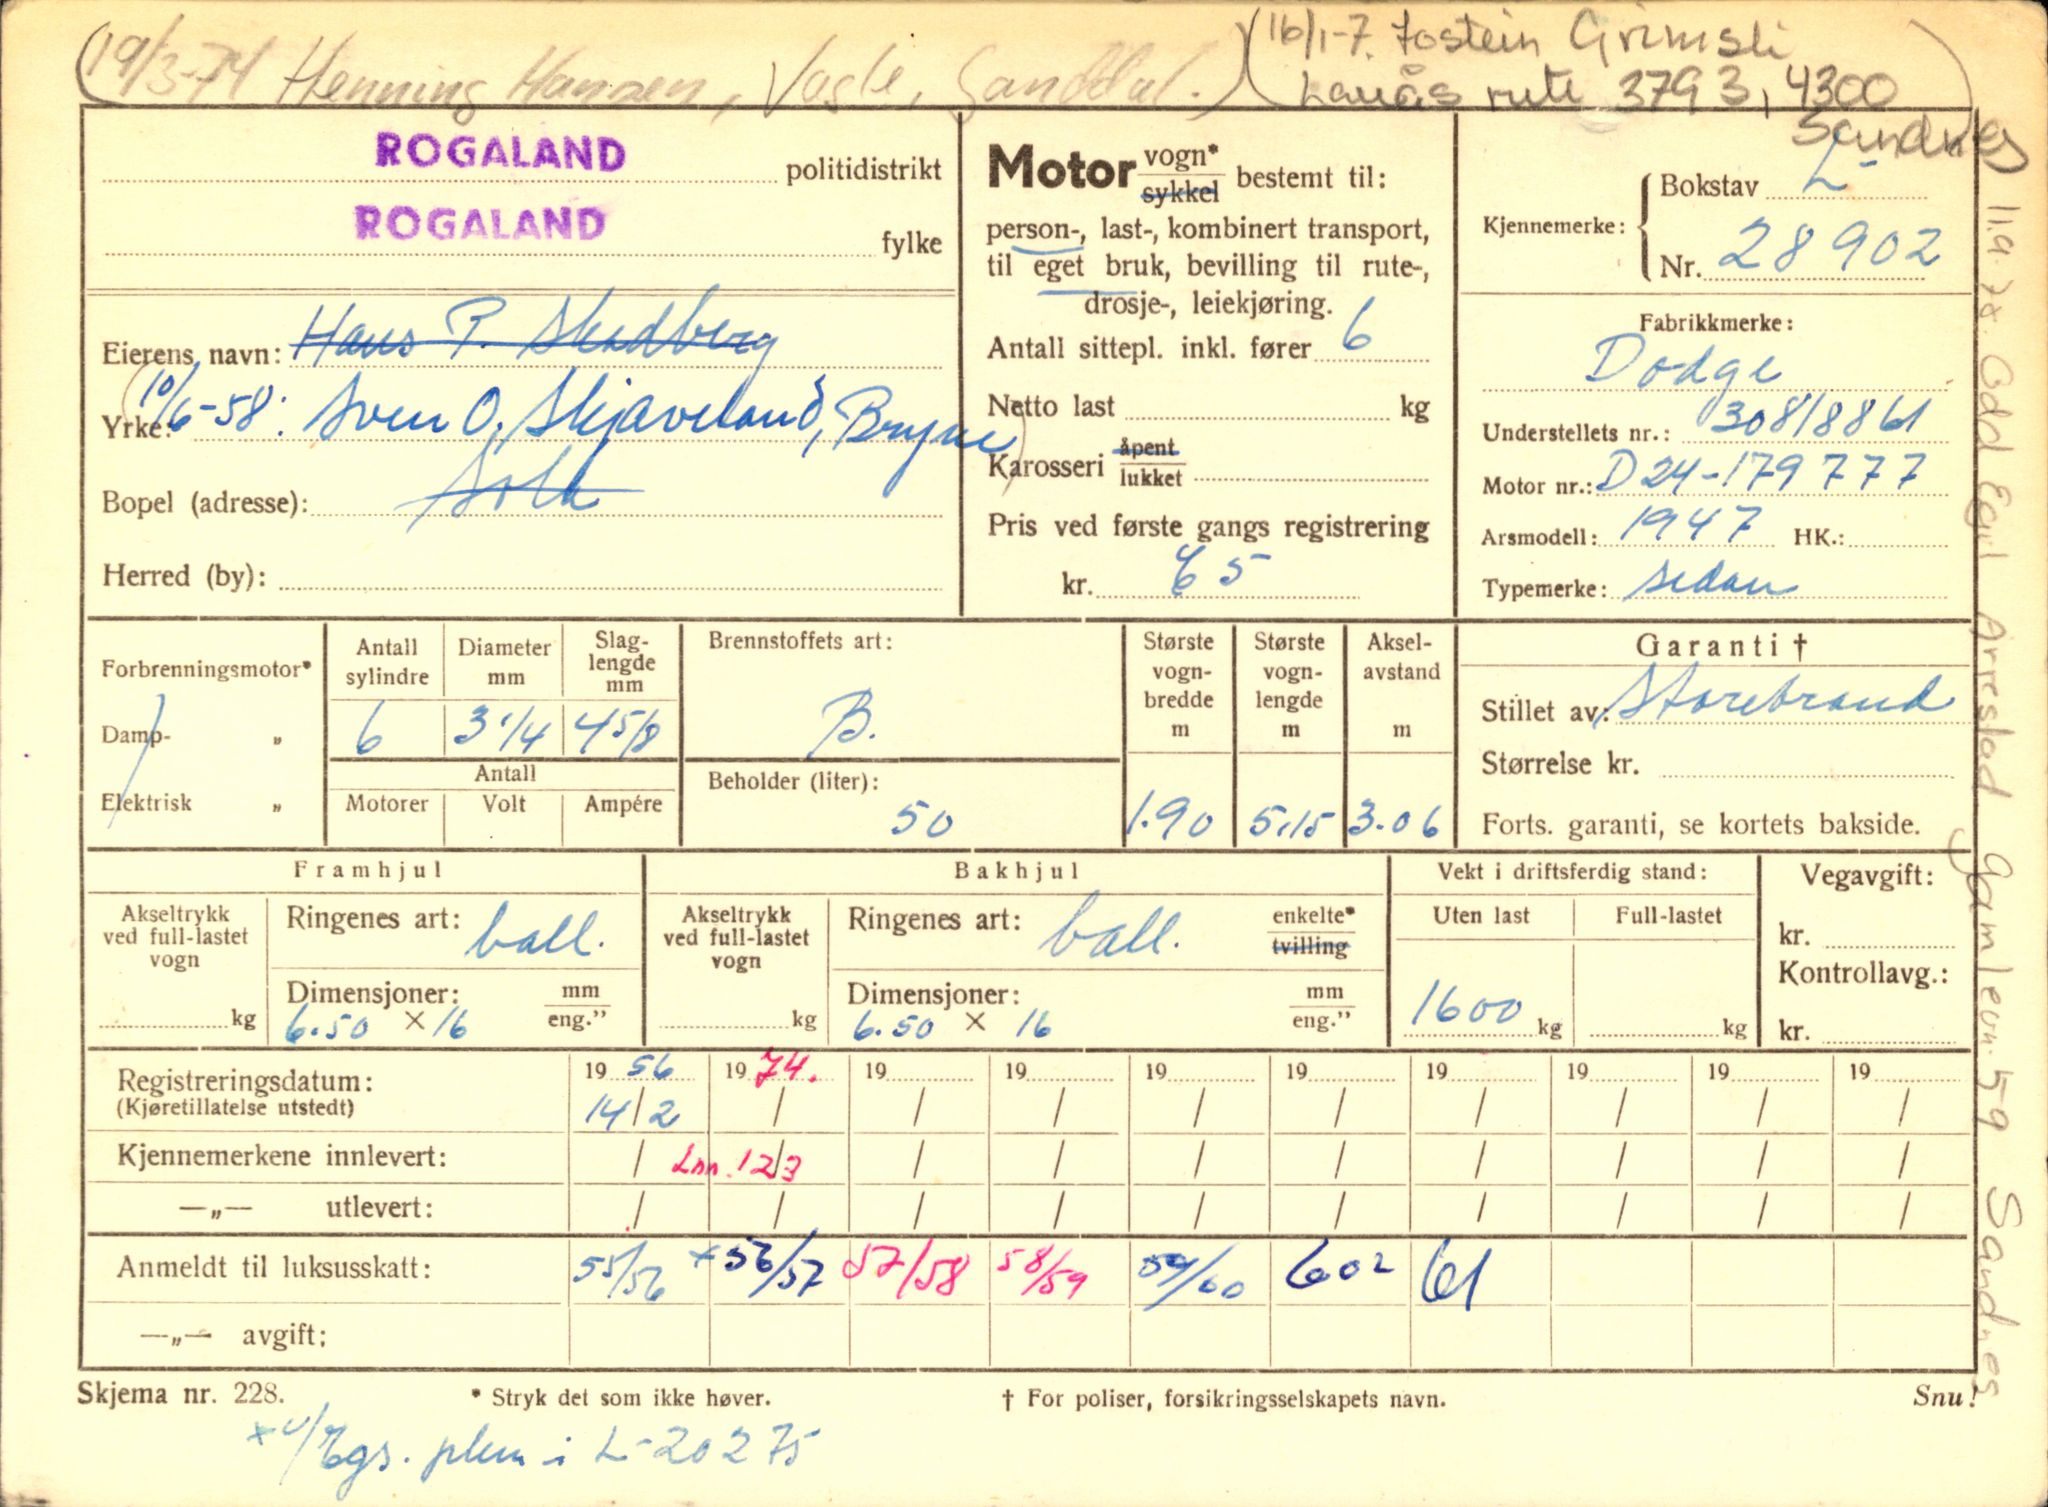 (19/3-74 Henning Hansen, Vagle, Sanddal.)
(16/1-7. Jostein Grimsli
rute 3793, 4300
Sandnes
ROGALAND politidistrikt
ROGALAND fylke
Eierens navn: Hans P. Skadberg
Yrke: 10/6-58: Sven O. Skjæveland, Bryne
Bopel (adresse): Sola
Herred (by):
Motor vogn* sykkel bestemt til:
person-, last-, kombinert transport,
til eget bruk, bevilling til rute-,
drosje-, leiekjøring.
Antall sittepl. inkl. fører 6
Netto last kg
Karosseri åpent lukket
Pris ved første gangs registrering
kr. 65
Kjennemerke: Bokstav L-
Nr. 28902
Fabrikkmerke:
Dodge
Understellets nr.: 30818861
Motor nr.: D24-179777
Arsmodell: 1947 HK.:
Typemerke: sedan
Forbrenningsmotor*
Damp- „
Elektrisk „
Antall sylindre 6
Diameter mm 3 1/4
Slag-lengde mm 4 5/8
Antall
Motorer Volt Ampére
Brennstoffets art:
B.
Beholder (liter):
50
Største vogn-bredde m 1.90
Største vogn-lengde m 5.15
Aksel-avstand m 3.06
Garanti †
Stillet av: Storebrand
Størrelse kr.
Forts. garanti, se kortets bakside.
Framhjul
Akseltrykk ved full-lastet vogn kg
Ringenes art: ball.
Dimensjoner: mm eng.”
6.50 × 16
Bakhjul
Akseltrykk ved full-lastet vogn kg
Ringenes art: ball. enkelte* tvilling
Dimensjoner: mm eng.”
6.50 × 16
Vekt i driftsferdig stand:
Uten last Full-lastet
1600 kg kg
Vegavgift:
kr.
Kontrollavg.:
kr.
Registreringsdatum: 1956 1974. 19 19 19 19 19 19 19 19
(Kjøretillatelse utstedt) 14/2 / / / / / / / / /
Kjennemerkene innlevert: / Inn. 12/3 / / / / / / / /
—„— utlevert: / / / / / / / / / /
Anmeldt til luksusskatt: 55/56 ×56/57 57/58 58/59 59/60 602 61
—„— avgift:
Skjema nr. 228. * Stryk det som ikke høver. † For poliser, forsikringsselskapets navn. Snu!
i L-20275
11.9.78. Odd Egil Arrestad Gamlevn. 59 Sandnes